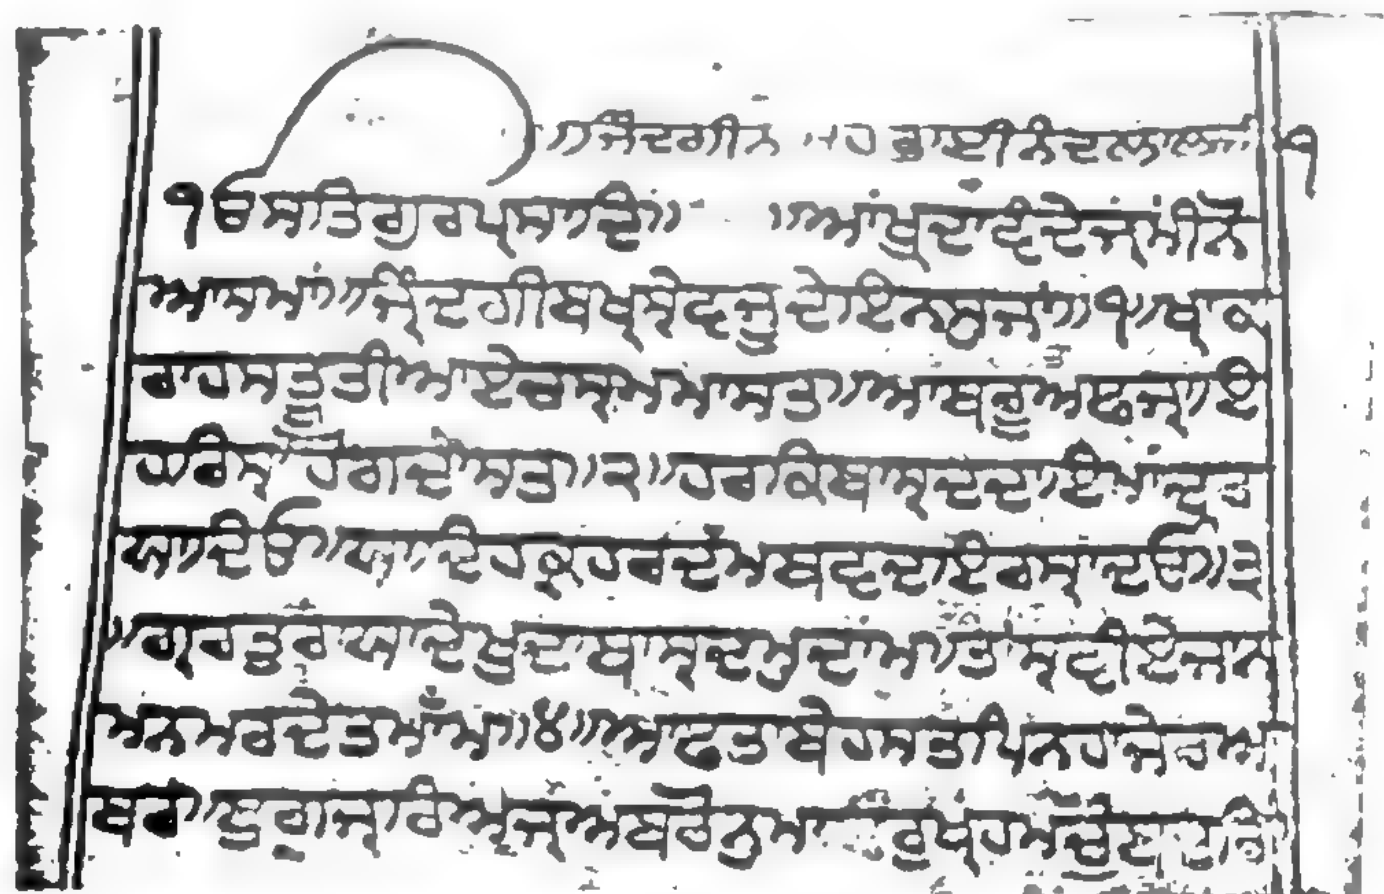 ॥ਜਿੰਦਗੀਨਾਮਹ ਭਾਈਨੰਦਲਾਲਜੀ ੧
ੴਸਤਿਗੁਰਪ੍ਰਸਾਦਿ॥ ॥ਆਂਖੁਦਾਵੰਦੇਜ਼ਮੀਨੋ
ਆਸਮਾਂ॥ਜ਼ਿੰਦਗੀਬਖ਼ਸ਼ੇਵਜੂਦੇਇਨਸੁਜਾਂ॥੧॥ਖਾਕ
ਰਾਹਸਤੂਤੀਆਏਚਸ਼ਮਮਾਸਤ॥ਆਬਰੂਅਫਜ਼ਾਇ
ਹਰਿਸ਼ਾਹਗਦਾਸਤ॥੨॥ਹਰਕਿਬਾਸ਼ਦਦਾਇਮਾਦਰ
ਯਾਦਿਓ॥ਯਾਦਿਹਕਹਰਦੰਮਬਵਦਇਰਸ਼ਾਦਓ॥੩
॥ਗ਼ਰਤੁਰਾਯਾਦੇਖੁਦਾਬਾਸ਼ਦਮੁਦਾਮ॥ਤਾਸ਼ਵੀਏਜਾਨ
ਮਨਮਰਦੇਤਮਾਂਮ॥੪॥ਆਫਤਾਬੇਹਸਤਪਿਨਹਾਜੇਰਅ
ਬਰ॥ਬੁਗਜ਼ਰਿਅਜ਼ਅਬਰੋਨੁਮਾ